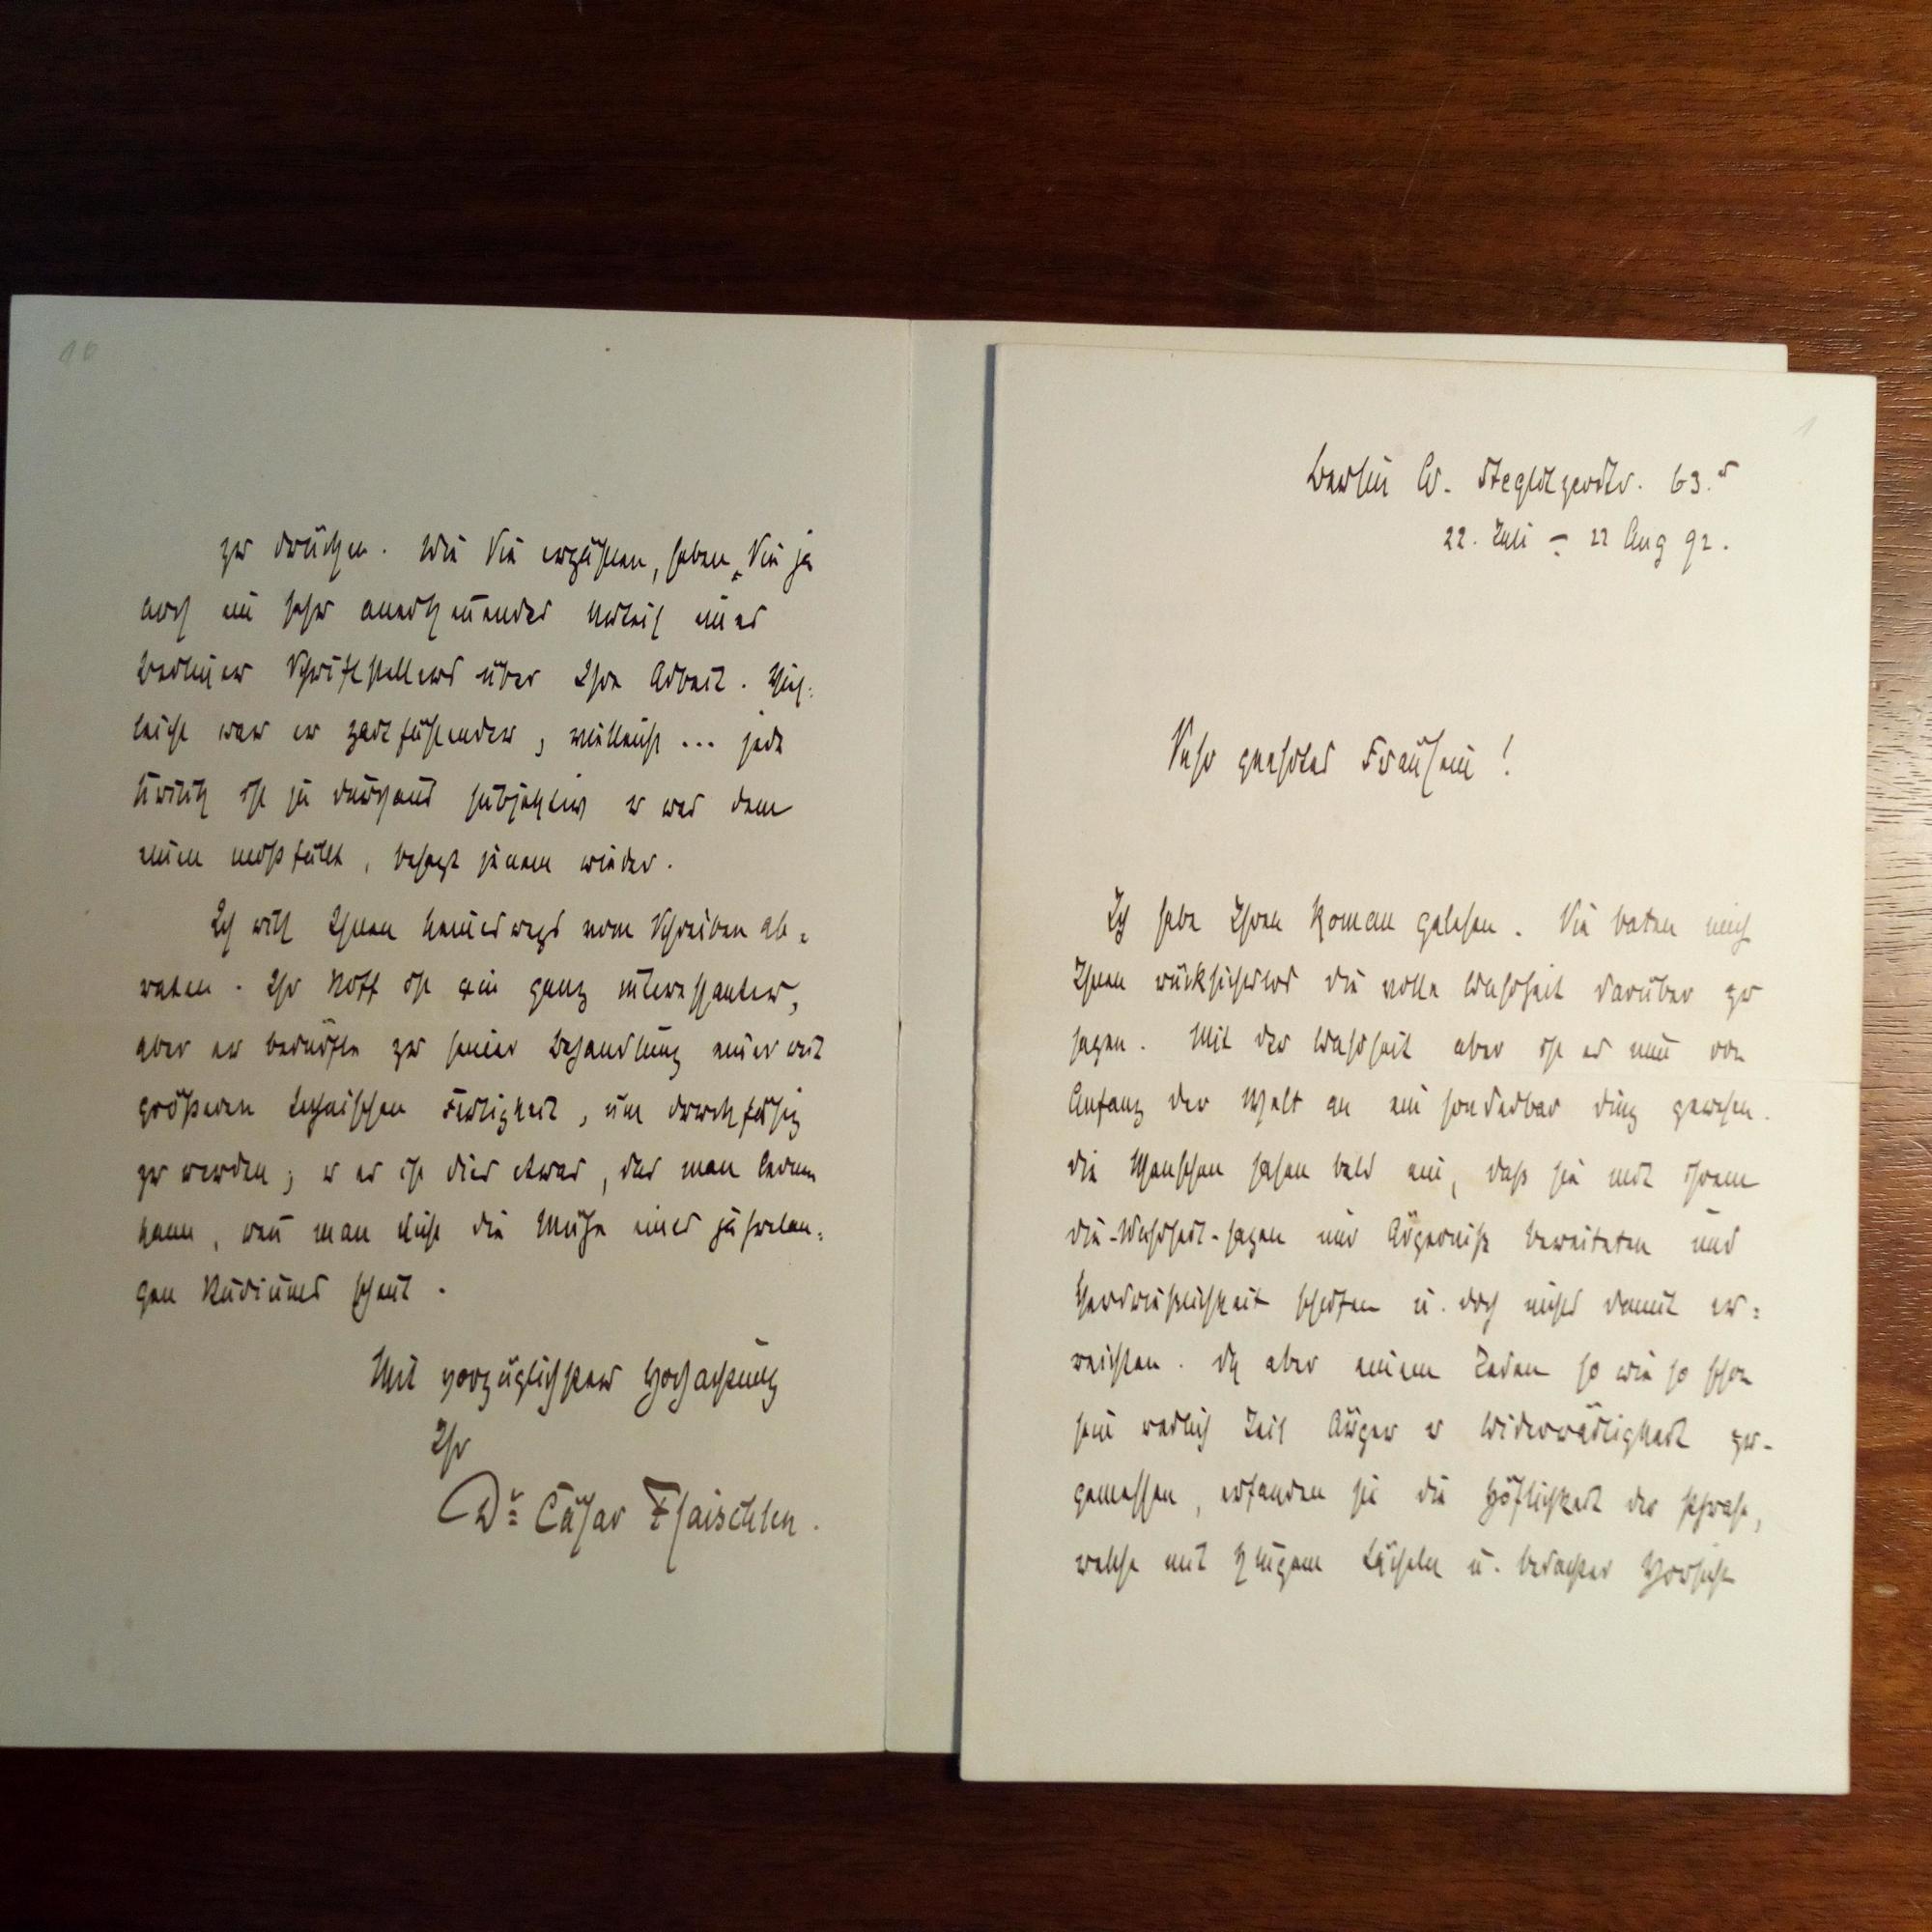 10
zu drücken. Wie Sie erzählen, haben Sie ja
auch ein sehr anerkennendes Urteil eines
Berliner Schriftstellers über Ihre Arbeit. Viel-
leicht war er zartfühlender, vielleicht ... jede
Kritik ist ja durchaus subjektiv u was dem
einen mißfällt, behagt jenem wieder.
Ich will Ihnen keineswegs vom Schreiben ab-
raten. Ihr Stoff ist ein ganz interessanter,
aber er bedürfte zu seiner Behandlung einer weit
größeren technischen Fertigkeit, um druckfähig
zu werden; u es ist dies etwas, das man lernen
kann, wen̄ man nicht die Mühe eines jahrelan-
gen Studiums scheut.
Mit vorzüglichster Hochachtung
Ihr
Dr. Cäsar Flaischlen.
1
Berlin W. Steglitzerstr. 63.
22. Juli – 22 Aug 92.
Sehr geehrtes Fräulein!
Ich habe Ihren Roman gelesen. Sie baten mich
Ihnen rücksichtslos die volle Wahrheit darüber zu
sagen. Mit der Wahrheit aber ist es nun von
Anfang der Welt an ein sonderbar Ding gewesen.
Die Menschen sahen bald ein, daß sie mit ihrem
die-Wahrheit-sagen nur Ärgerniß bereiteten und
Verdrießlichkeit schufen u. doch nichts damit er-
reichten. Da aber einem Jeden so wie so schon
sein redlich Teil Ärger u Widerwärtigkeit zu-
gemessen, erfanden sie die Höflichkeit der Phrase,
welche mit klugem Lächeln u. bedachter Vorsicht